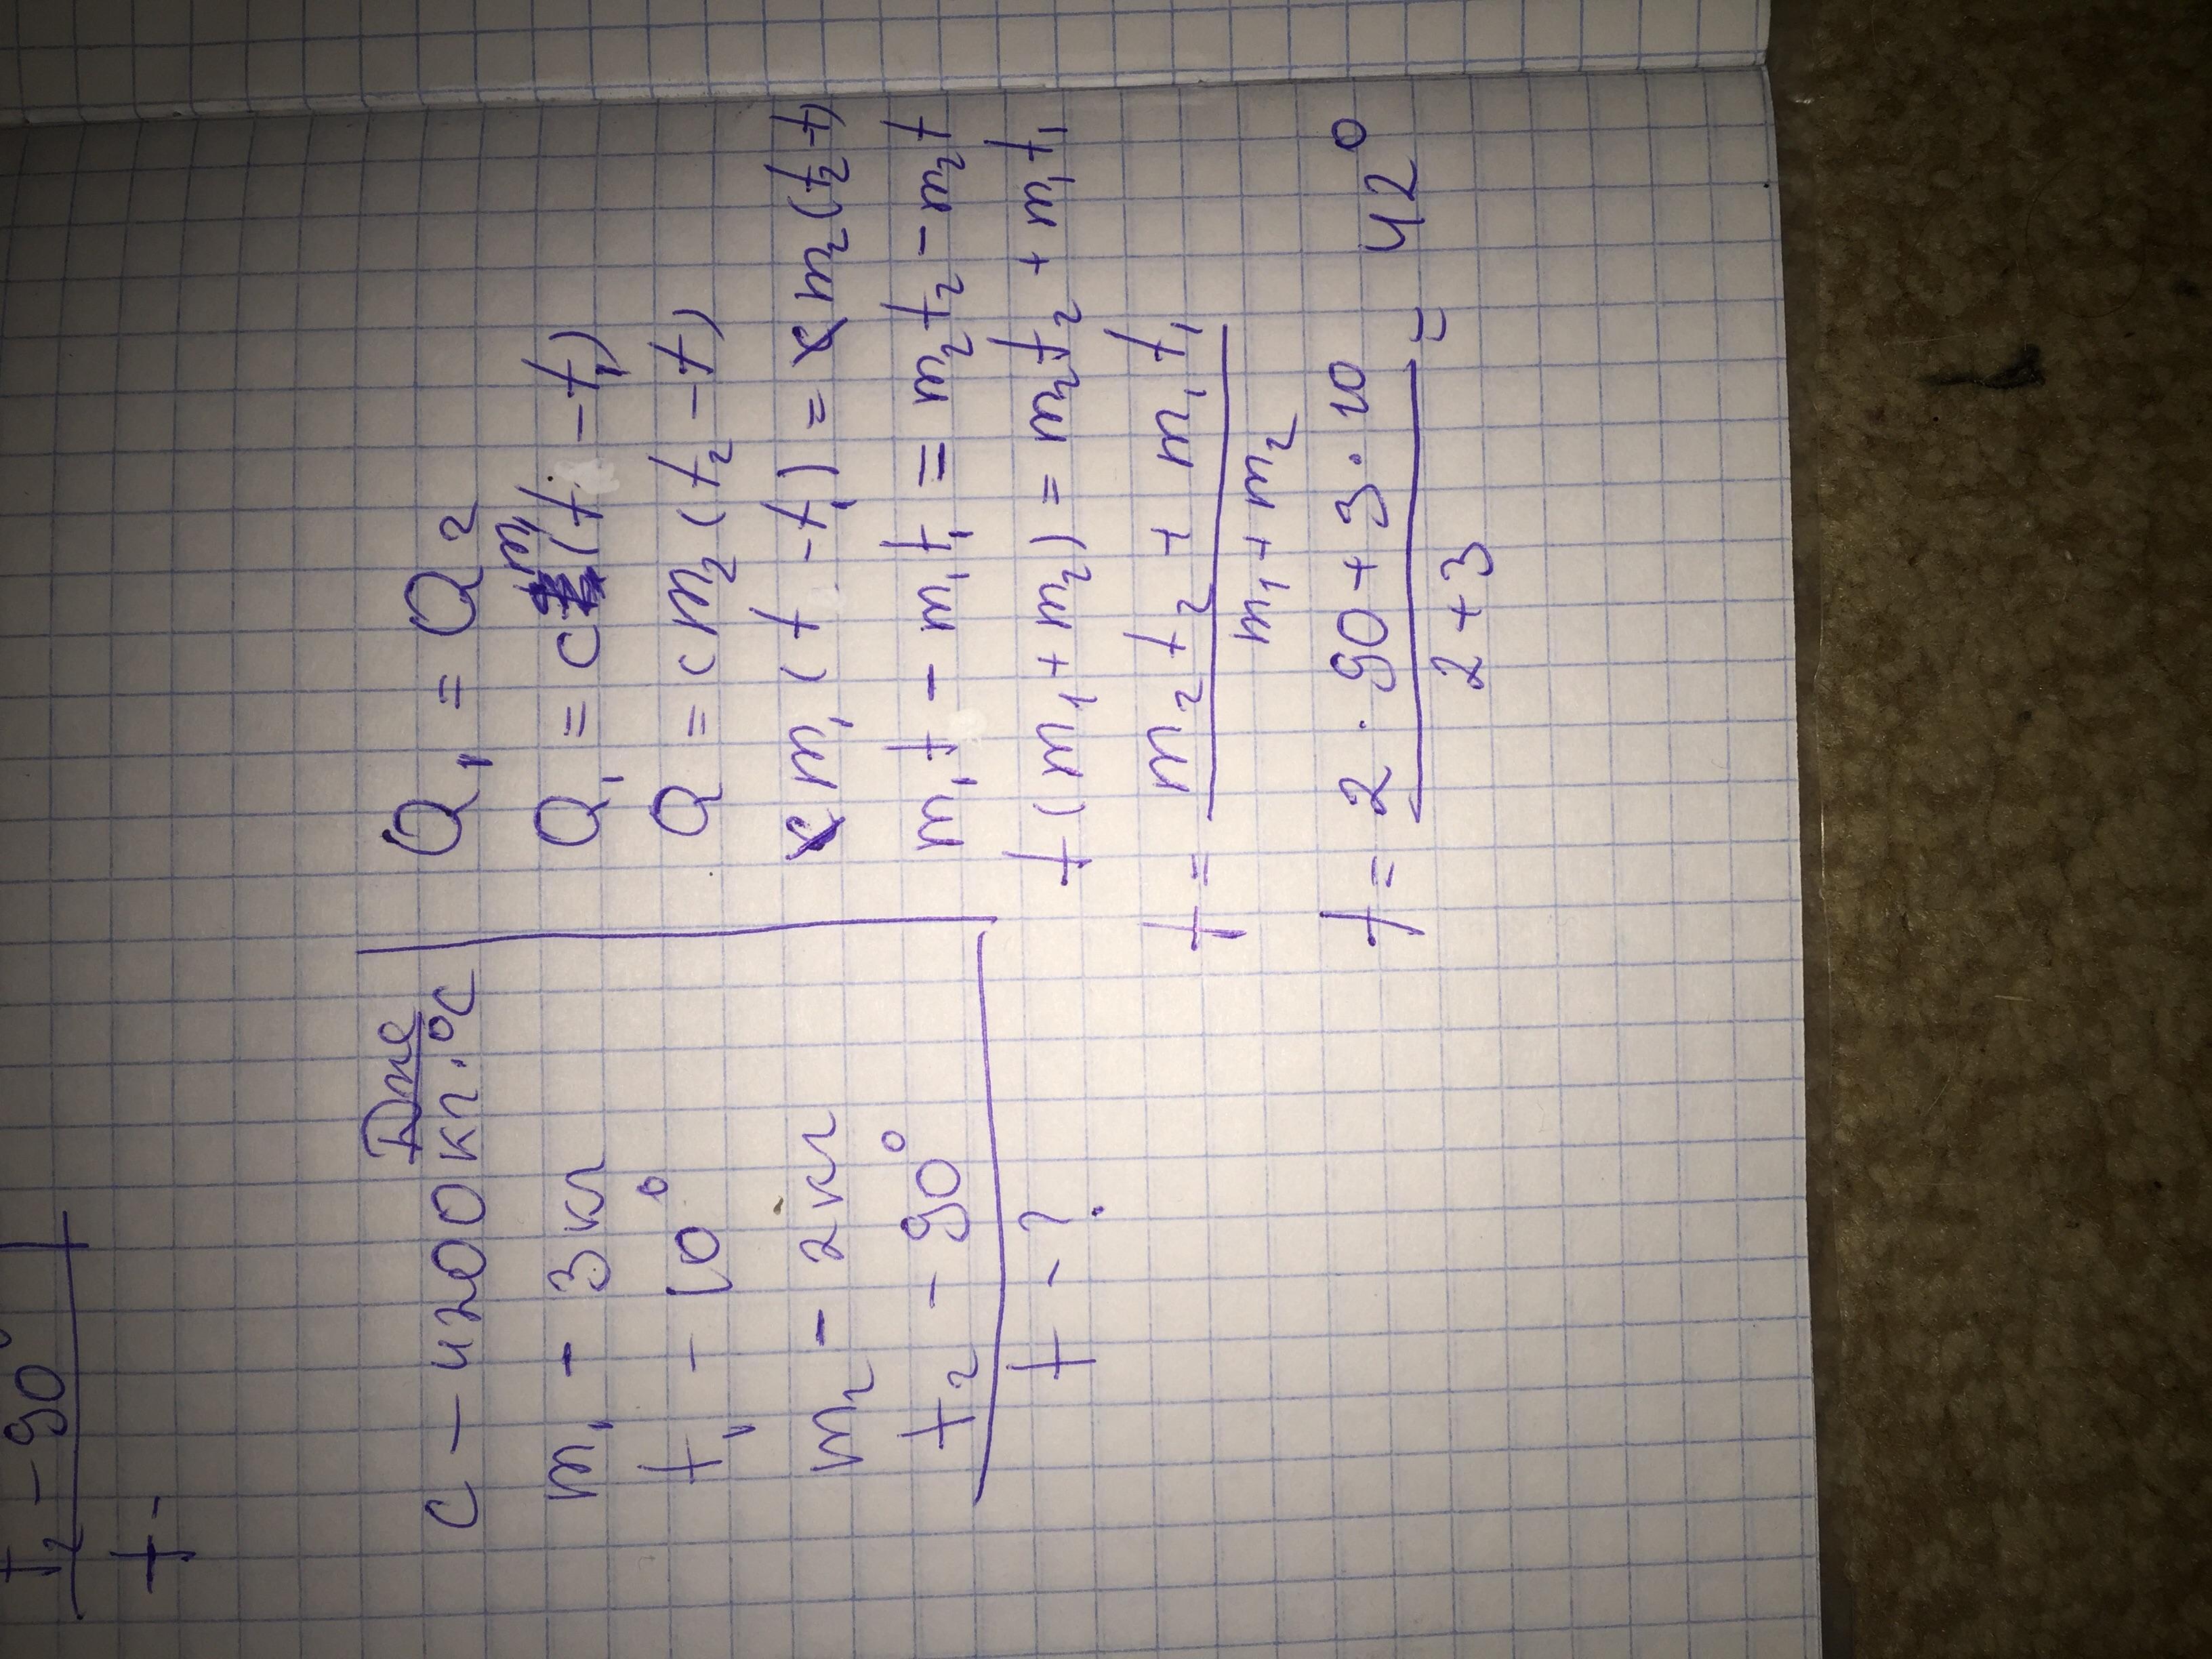 t₂ - 90°
t -
c - 4200 Дже/кг·°C
m₁ - 3 кг
t₁ - 10°
m₂ - 2 кг
t₂ - 90°
t - ?
Q₁ = Q₂
Q₁ = cm₁(t - t₁)
Q = cm₂(t₂ - t)
cm₁(t - t₁) = cm₂(t₂ - t)
m₁t - m₁t₁ = m₂t₂ - m₂t
t(m₁ + m₂) = m₂t₂ + m₁t₁
t = (m₂t₂ + m₁t₁)/(m₁ + m₂)
t = (2 · 90 + 3 · 10)/(2 + 3) = 42°